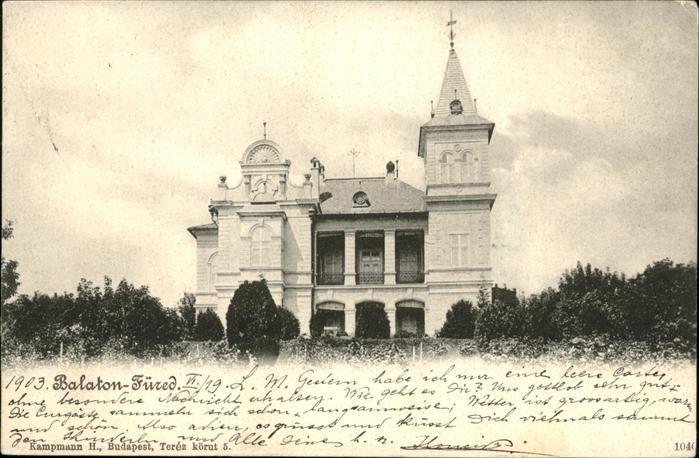 1903. Balaton-Füred. VI./19. L. M. Gestern habe ich nur eine leere Carte
ohne besondere Nachricht erhalten. Wie geht es Dir? Uns gottlob sehr gut
Die Curgäste sammeln sich schon, langsam; Wetter ist grossartig, warm
und schön. Also adieu, es grüsst und küsst Dich vielmals sammt
den und Alle Deine
Kampmann H., Budapest, Teréz körut 5.